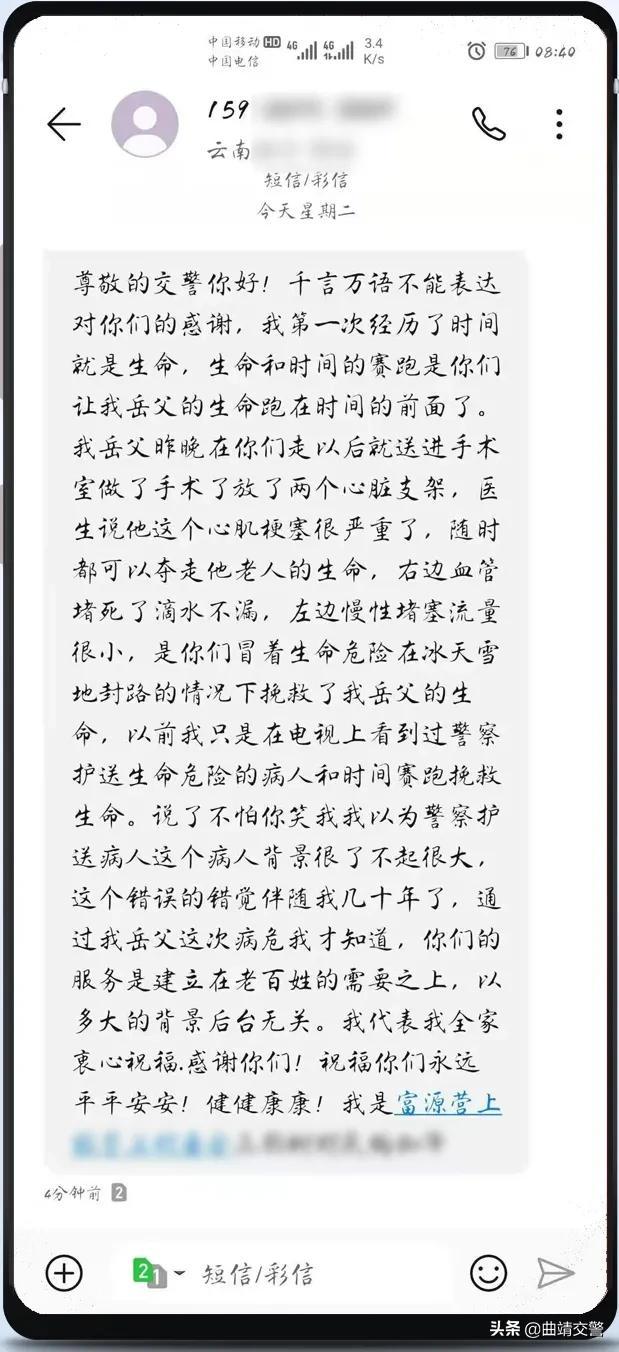 中国移动 HD 4G 4G 3.4 76 08:40
中国电信 K/s
159
云南
短信/彩信
今天星期二
尊敬的交警你好！千言万语不能表达
对你们的感谢，我第一次经历了时间
就是生命，生命和时间的赛跑是你们
让我岳父的生命跑在时间的前面了。
我岳父昨晚在你们走以后就送进手术
室做了手术了放了两个心脏支架，医
生说他这个心肌梗塞很严重了，随时
都可以夺走他老人的生命，右边血管
堵死了滴水不漏，左边慢性堵塞流量
很小，是你们冒着生命危险在冰天雪
地封路的情况下挽救了我岳父的生
命，以前我只是在电视上看到过警察
护送生命危险的病人和时间赛跑挽救
生命。说了不怕你笑我我以为警察护
送病人这个病人背景很了不起很大，
这个错误的错觉伴随我几十年了，通
过我岳父这次病危我才知道，你们的
服务是建立在老百姓的需要之上，以
多大的背景后台无关。我代表我全家
衷心祝福.感谢你们！祝福你们永远
平平安安！健健康康！我是富源营上
4分钟前 2
21 短信/彩信
头条 @曲靖交警